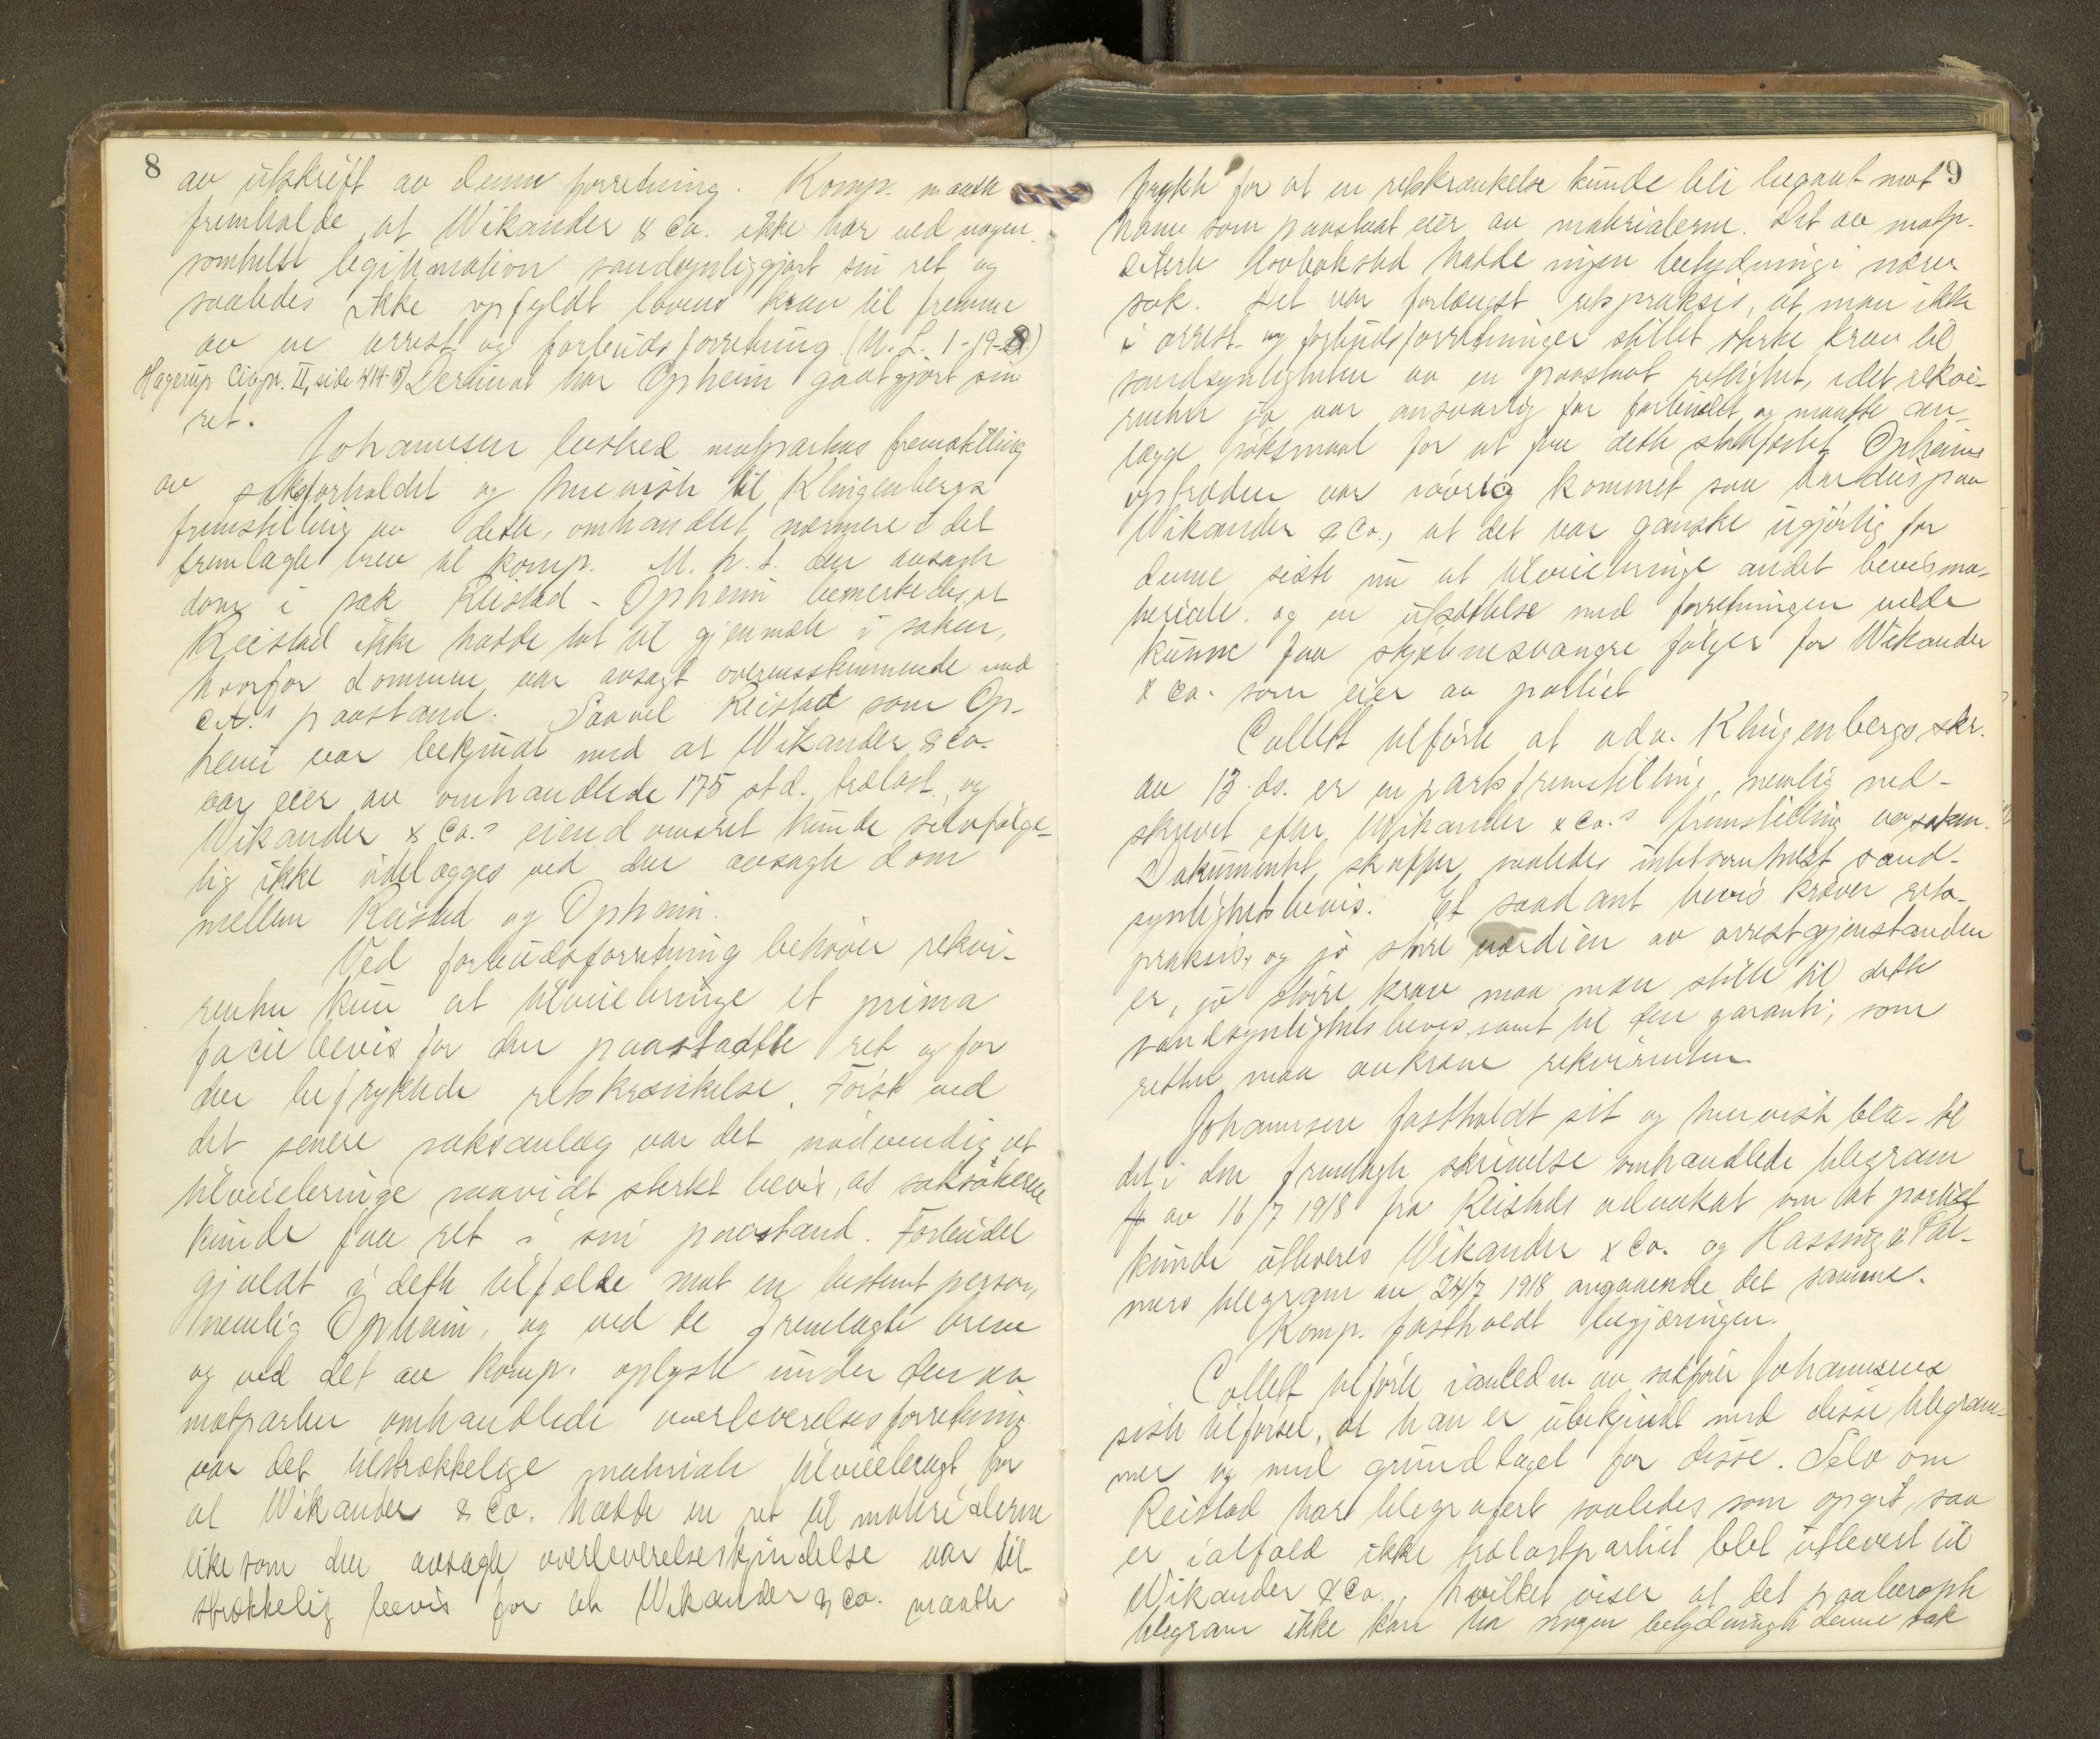 8
av utskrift av denne forretning. Komp. maatte
fremholde at Wikander & Co. ikke har ved nogen-
somhelst legitimation sandsynliggjort sin ret og
saaledes ikke opfyldt lovens krav til fremme
av en arrest og forbudsforretning (U. L. 1-19-
Hagerup Civpr. II, side 414-15) Derimot har Opheim godtgjort sin
ret.
Johannesen bestred motpartens fremstilling
av saksforholdet og henviste til Klingenbergs
fremstilling av dette, omhandlet nærmere i det
fremlagte brev til komp. M. h. t. den avsagte
dom i sak Reistad - Opheim bemerkedes, at
Reistad ikke hadde tat til gjenmæle i saken,
hvorfor dommen var avsagt overensstemmende med
cit.s paastand. Saavel Reistad som Op-
heim var bekjendt med at Wikander & Co.
var eier av omhandlede 175 std. trælast, og
Wikander & Co.s eiendomsret kunde selvfølge-
lig ikke ødelægges ved den avsagte dom
mellem Reistad og Opheim.
Ved forbudsforretning behøver rekvi-
renten kun at tilveiebringe et prima
facie bevis for den paastaatte ret og for
den befryktede retskrænkelse. Først ved
det senere saksanlæg var det nødvendig at
tilveiebringe saavidt sterkt bevis, at saksøkerne
kunde faa ret i sin paastand. Forbudet
gjaldt i dette tilfælde mot en bestemt person,
nemlig Opheim, og ved de fremlagte breve
og ved det av komp. oplyste under den av
motparten omhandlede overleverelsesforretning
var det tilstrækkelige materiale tilveiebragt for
at Wikander & Co. hadde en ret til materialerne
likesom den avsagte overleverelseskjendelse var til-
strækkelig bevis for at Wikander & Co. maatte
9
frykte for at en retskrænkelse kunde bli begaat mot
ham som paastaat eier av materialerne. Det av motp.
citerte lovbokstad hadde ingen betydning i nærv.
sak. Det var forlængst retspraksis, at man ikke
i arrest- og forbudsforretninger stillet sterke krav til
sandsynligheten av en paastaat rettighet, idet rekvi-
renten jo var ansvarlig for forbudet og maatte an-
lægge søksmaal for at faa dette stadfæstet. Opheims
optræden var iøvrig kommet saa bardus paa
Wikander & Co., at det var ganske ugjørlig for
denne siste nu at tilveiebringe andet bevisma-
teriale og en utsættelse med forretningen vilde
kunne faa skjæbnesvangre følger for Wikander
& Co. som eier av partiet
Collett tilførte at adv. Klingenbergs skr.
av 13 ds. er en partsfremstilling, nemlig ned-
skrevet efter Wikander & Co.s fremstilling av saken.
Dokumentet skaffer saaledes intetsomhelst sand-
synlighetsbevis. Et saadant bevis kræver rets-
praksis, og jo større værdien av arrestgjenstanden
er, jo større krav maa man stille til dette
sandsynlighetsbevis samt til den garanti, som
retten maa avkræve rekvirenten.
Johannesen fastholdt sit og henviste bla. til
det i den fremlagte skrivelse omhandlede telegram
av 16/7 1918 fra Reistads advokat om at partiet
kunde utleveres Wikander & Co. og Hassing & Pal-
mers telegram av 24/7 1918 angaaende det samme.
Komp. fastholdt begjæringen.
Collett tilførte i anledn. av sakfører Johannesens
siste tilførsel, at han er ubekjendt med disse telegram-
mer og med grundlaget for disse. Selv om
Reistad har telegrafert saaledes som opgit, saa
er ialfald ikke trælastpartiet blet utlevert til
Wikander & Co., hvilket viser at det paaberopte
telegram ikke kan ha nogen betydning i denne sak